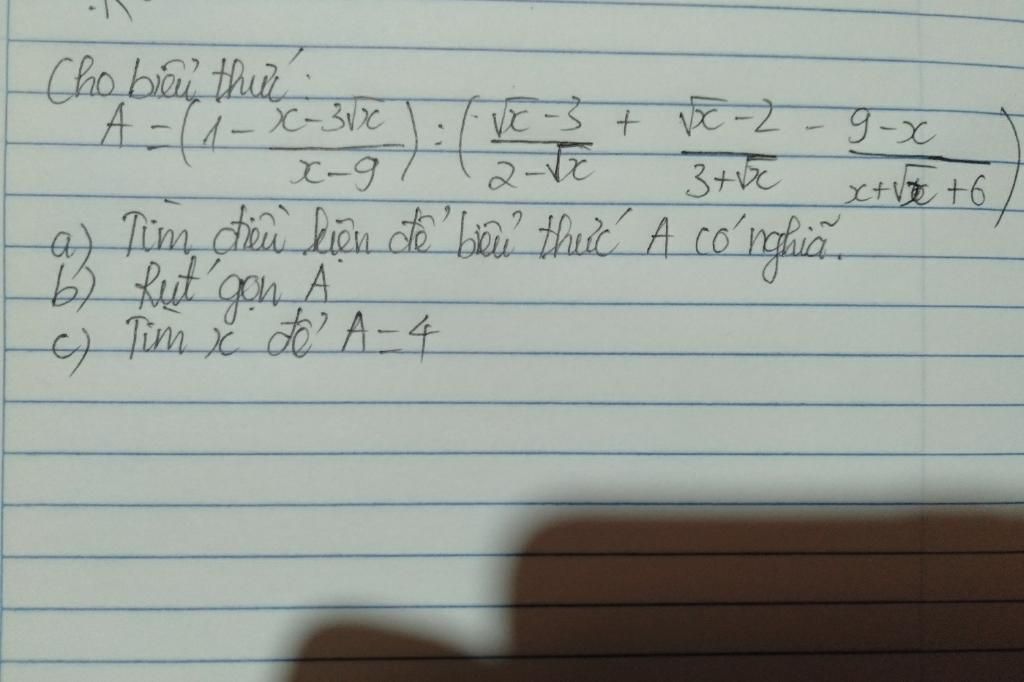 Cho biểu thức:
A = (1 - \frac{x-3\sqrt{x}}{x-9}) : (\frac{\sqrt{x}-3}{2-\sqrt{x}} + \frac{\sqrt{x}-2}{3+\sqrt{x}} - \frac{9-x}{x+\sqrt{x}+6})
a) Tìm điều kiện để biểu thức A có nghĩa.
b) Rút gọn A
c) Tìm x để A = 4